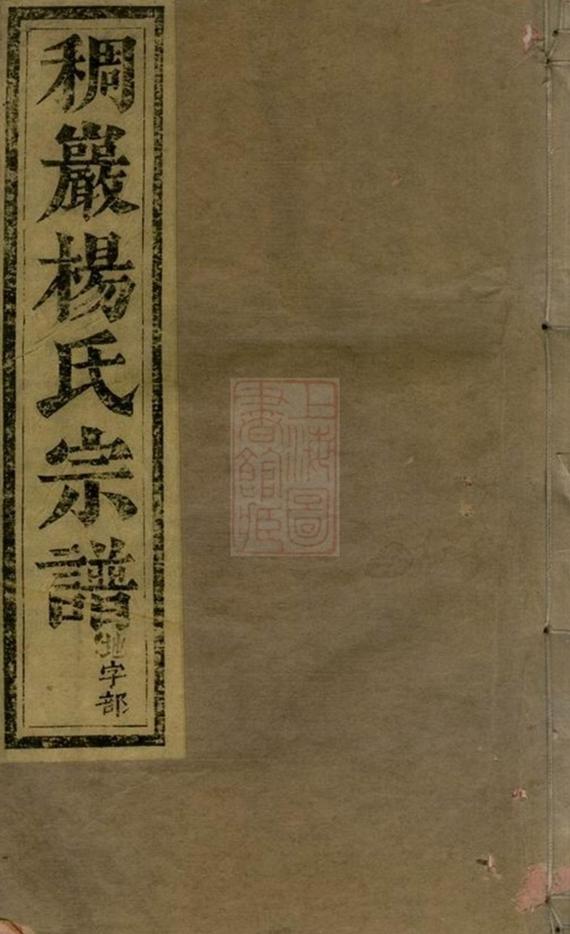 稠巖楊氏宗譜
地字部
上海圖
書館藏